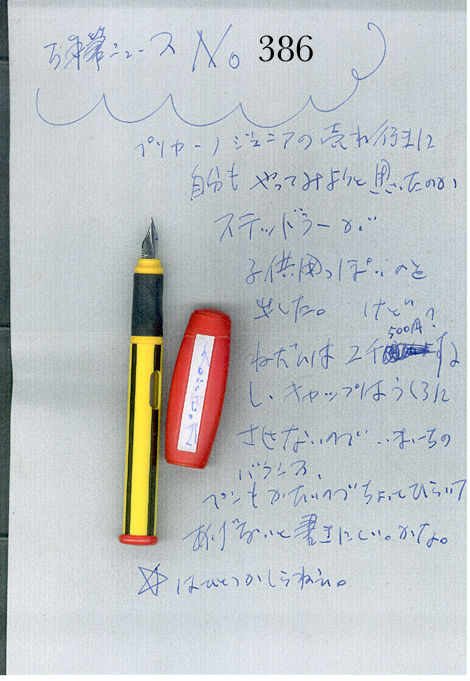 ニュース No 386
ペリカーノジュニアの売れ行きに
自分もやってみようと思ったのか
ステッドラーが
子供用っぽいのを
出した。けど?
ねだんは2千500円
し、キャップはうしろに
させないので、いまいちの
バランス、
ペンもかたいのでちょっとひらいて
あげないと書きにくい。かな。
☆はひとつかしらねぇ。